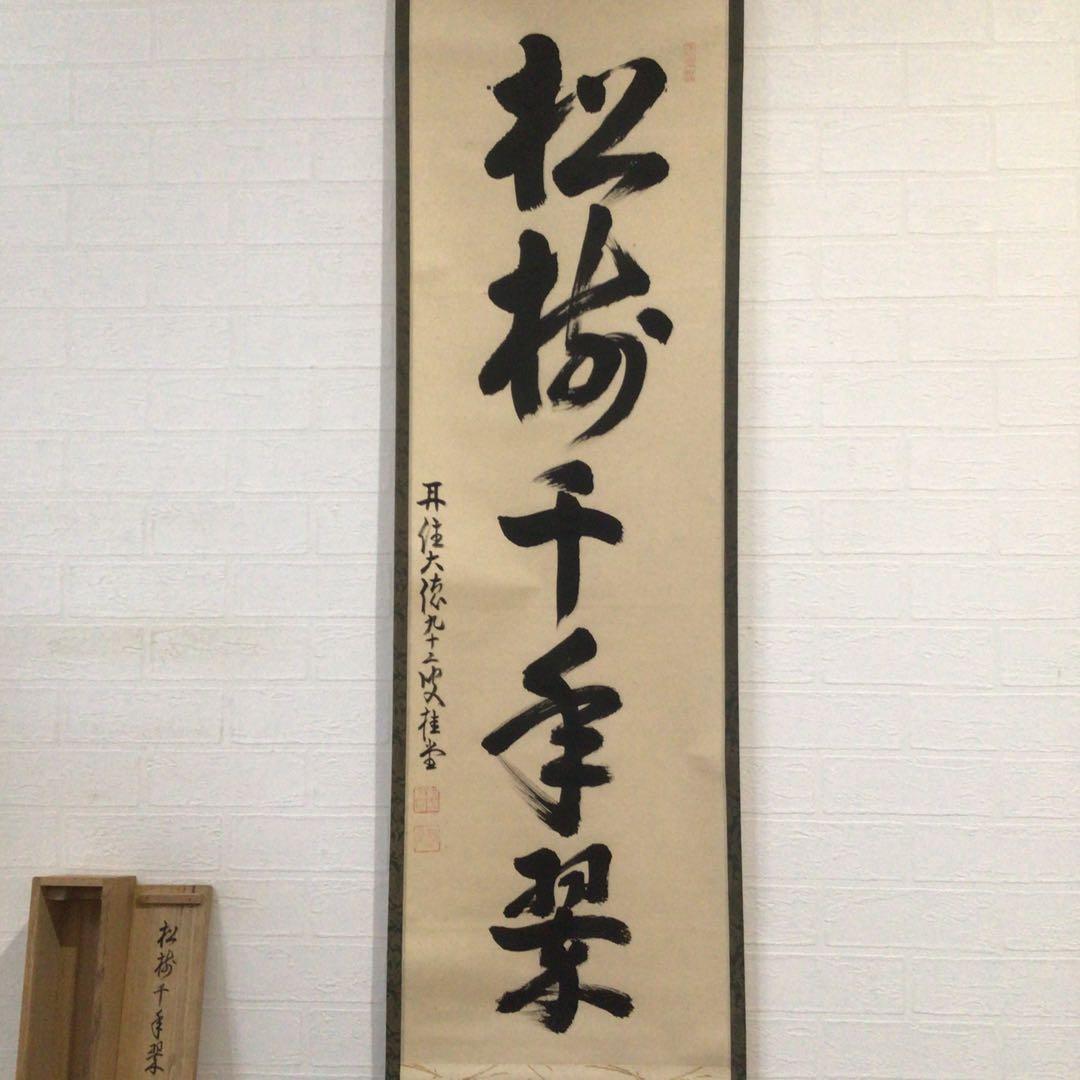 松樹千年翠
再住大徳九十二叟桂堂
松樹千年翠